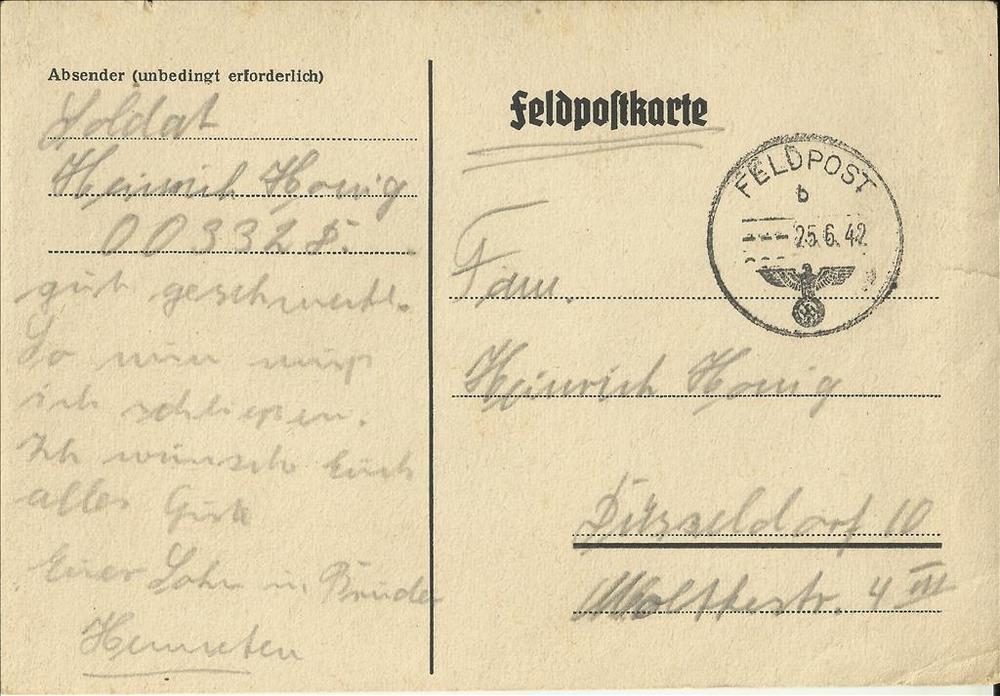 Absender (unbedingt erforderlich)
Soldat
Heinrich Honig
00332 D.
gut geschmeckt.
So nun muß
ich schließen.
Ich wünsche Euch
alles Gute
Euer Sohn u. Bruder
Feldpostkarte
FELDPOST
b
25.6.42
Fam.
Heinrich Honig
Düsseldorf 10
Moltkestr. 4 III